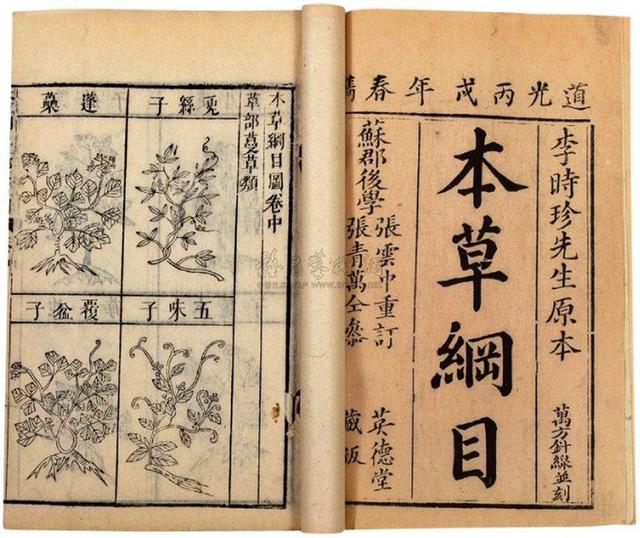 道光丙戌年春鐫
李時珍先生原本
萬方針線並刻
本草綱目
蘇郡後學
張雲中重訂
張青萬仝參
英德堂
藏
本草綱目圖卷中
草部蔓草類
兎絲子
蓬蘽
五味子
覆盆子